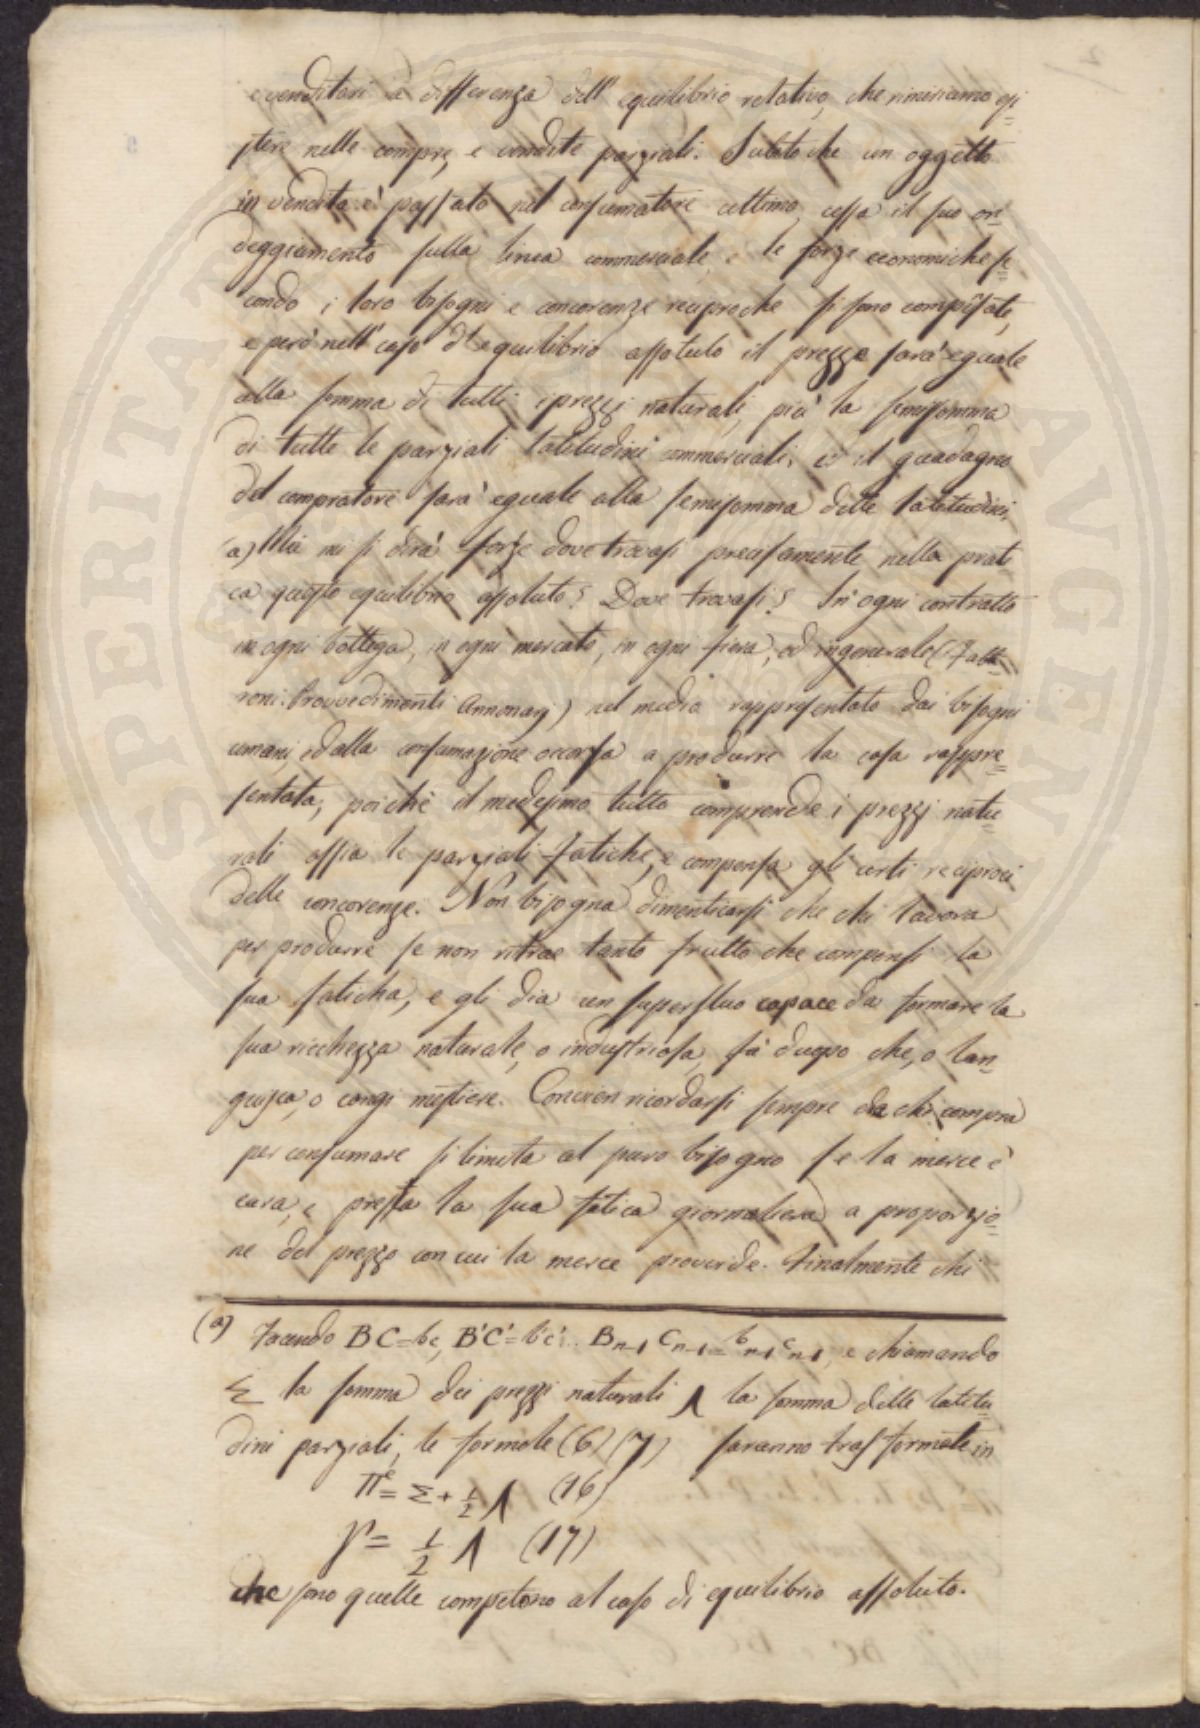 e venditori a differenza dell'equilibrio relativo, che rimiriamo esi=
stere nelle compre, e vendite parziali. Subito che un oggetto
in vendita è passato nel consumatore ultimo, cessa il suo on=
deggiamento sulla linea commerciale, e le forze economiche se=
condo i loro bisogni e concorenze reciproche si sono compensate,
e però nell'caso d'equilibrio assoluto il prezzo sarà eguale
alla somma di tutti i prezzi naturali, più la semisomma
di tutte le parziali latitudini commerciali, ed il guadagno
del compratore sarà eguale alla semisomma dette latitudini.
(a) Mà mi si dirà forse dove trovasi precisamente nella prati=
ca questo equilibrio assoluto? Dove trovasi? In ogni contratto
in ogni bottega, in ogni mercato, in ogni fiera, ed in generale (Fabb=
roni. Provvedimenti Annonarj) nel medio rappresentato dai bisogni
umani, e dalla consumazione occorsa a produrre la cosa rappre=
sentata, poichè il medesimo tutto comprende i prezzi natu=
rali ossia le parziali fatiche, e compensa gl'urti reciproci
delle concorenze. Non bisogna dimenticarsi che chi lavora
per produrre se non ritrae tanto frutto che compensi la
sua faticha, e gli dia un superfluo capace da formare la
sua ricchezza naturale, o industriosa, fà duopo che, o lan=
guisca, o cangi mestiere. Convien ricordarsi sempre che chi compra
per consumare si limita al puro bisogno se la merce è
cara, e presta la sua fatica giornaliera a proporzio=
ne del prezzo con cui la merce provvede. Finalmente chi
(a) Facendo BC=bc, B'C'=b'c'... B n-1 C n-1 = b n-1 c n-1, e chiamando
Σ la somma dei prezzi naturali Λ la somma delle latitu=
dini parziali, le formole (6) (7) saranno trasformate in
Π = Σ + 1/2 Λ (16)
γ = 1/2 Λ (17)
che sono quelle competono al caso di equilibrio assoluto.